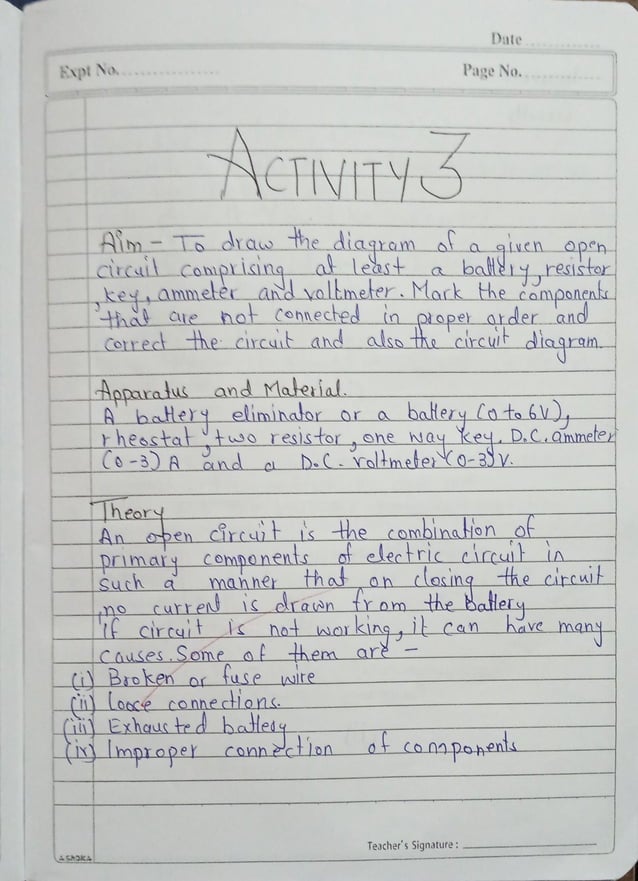 Date
Expt No.
Page No.
ACTIVITY 3
Aim - To draw the diagram of a given open
circuit comprising at least a battery, resistor
, key, ammeter and voltmeter. Mark the components
that are not connected in proper order and
correct the circuit and also the circuit diagram.
Apparatus and Material.
A battery eliminator or a battery (0 to 6V),
rheostat, two resistor, one way key, D.C. ammeter
(0-3) A and a D.C. voltmeter (0-3) V.
Theory
An open circuit is the combination of
primary components of electric circuit in
such a manner that on closing the circuit
,no current is drawn from the battery
if circuit is not working, it can have many
causes. Some of them are -
(i) Broken or fuse wire
(ii) Loose connections.
(iii) Exhausted battery
(ix) Improper connection of components
Teacher's Signature :
ASHOKA